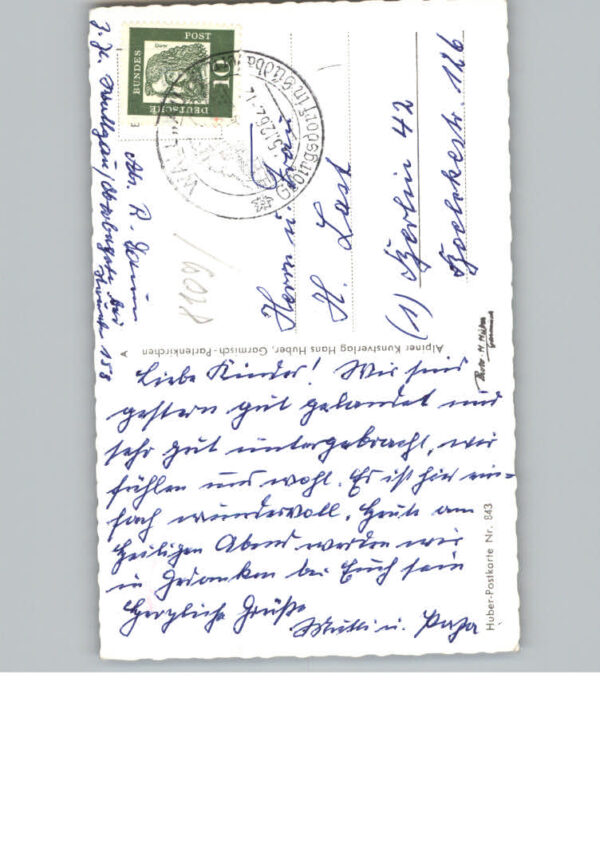 Liebe Kinder! Wir sind
gestern gut gelandet und
sehr gut untergebracht, wir
fühlen uns wohl. Es ist hier ein-
fach wundervoll. Heute am
Heiligen Abend werden wir
in Gedanken bei Euch sein
Herzliche Grüße
Mutti u. Papa
Herrn u. Frau
H. Last
(1) Berlin 42
Boelckestr. 126
Abs. R.
z. Zt.
bei
158
DEUTSCHE
BUNDES
POST
10
WALLFAHRTS
Alpiner Kunstverlag Hans Huber, Garmisch-Partenkirchen
A
Huber-Postkarte Nr. 843